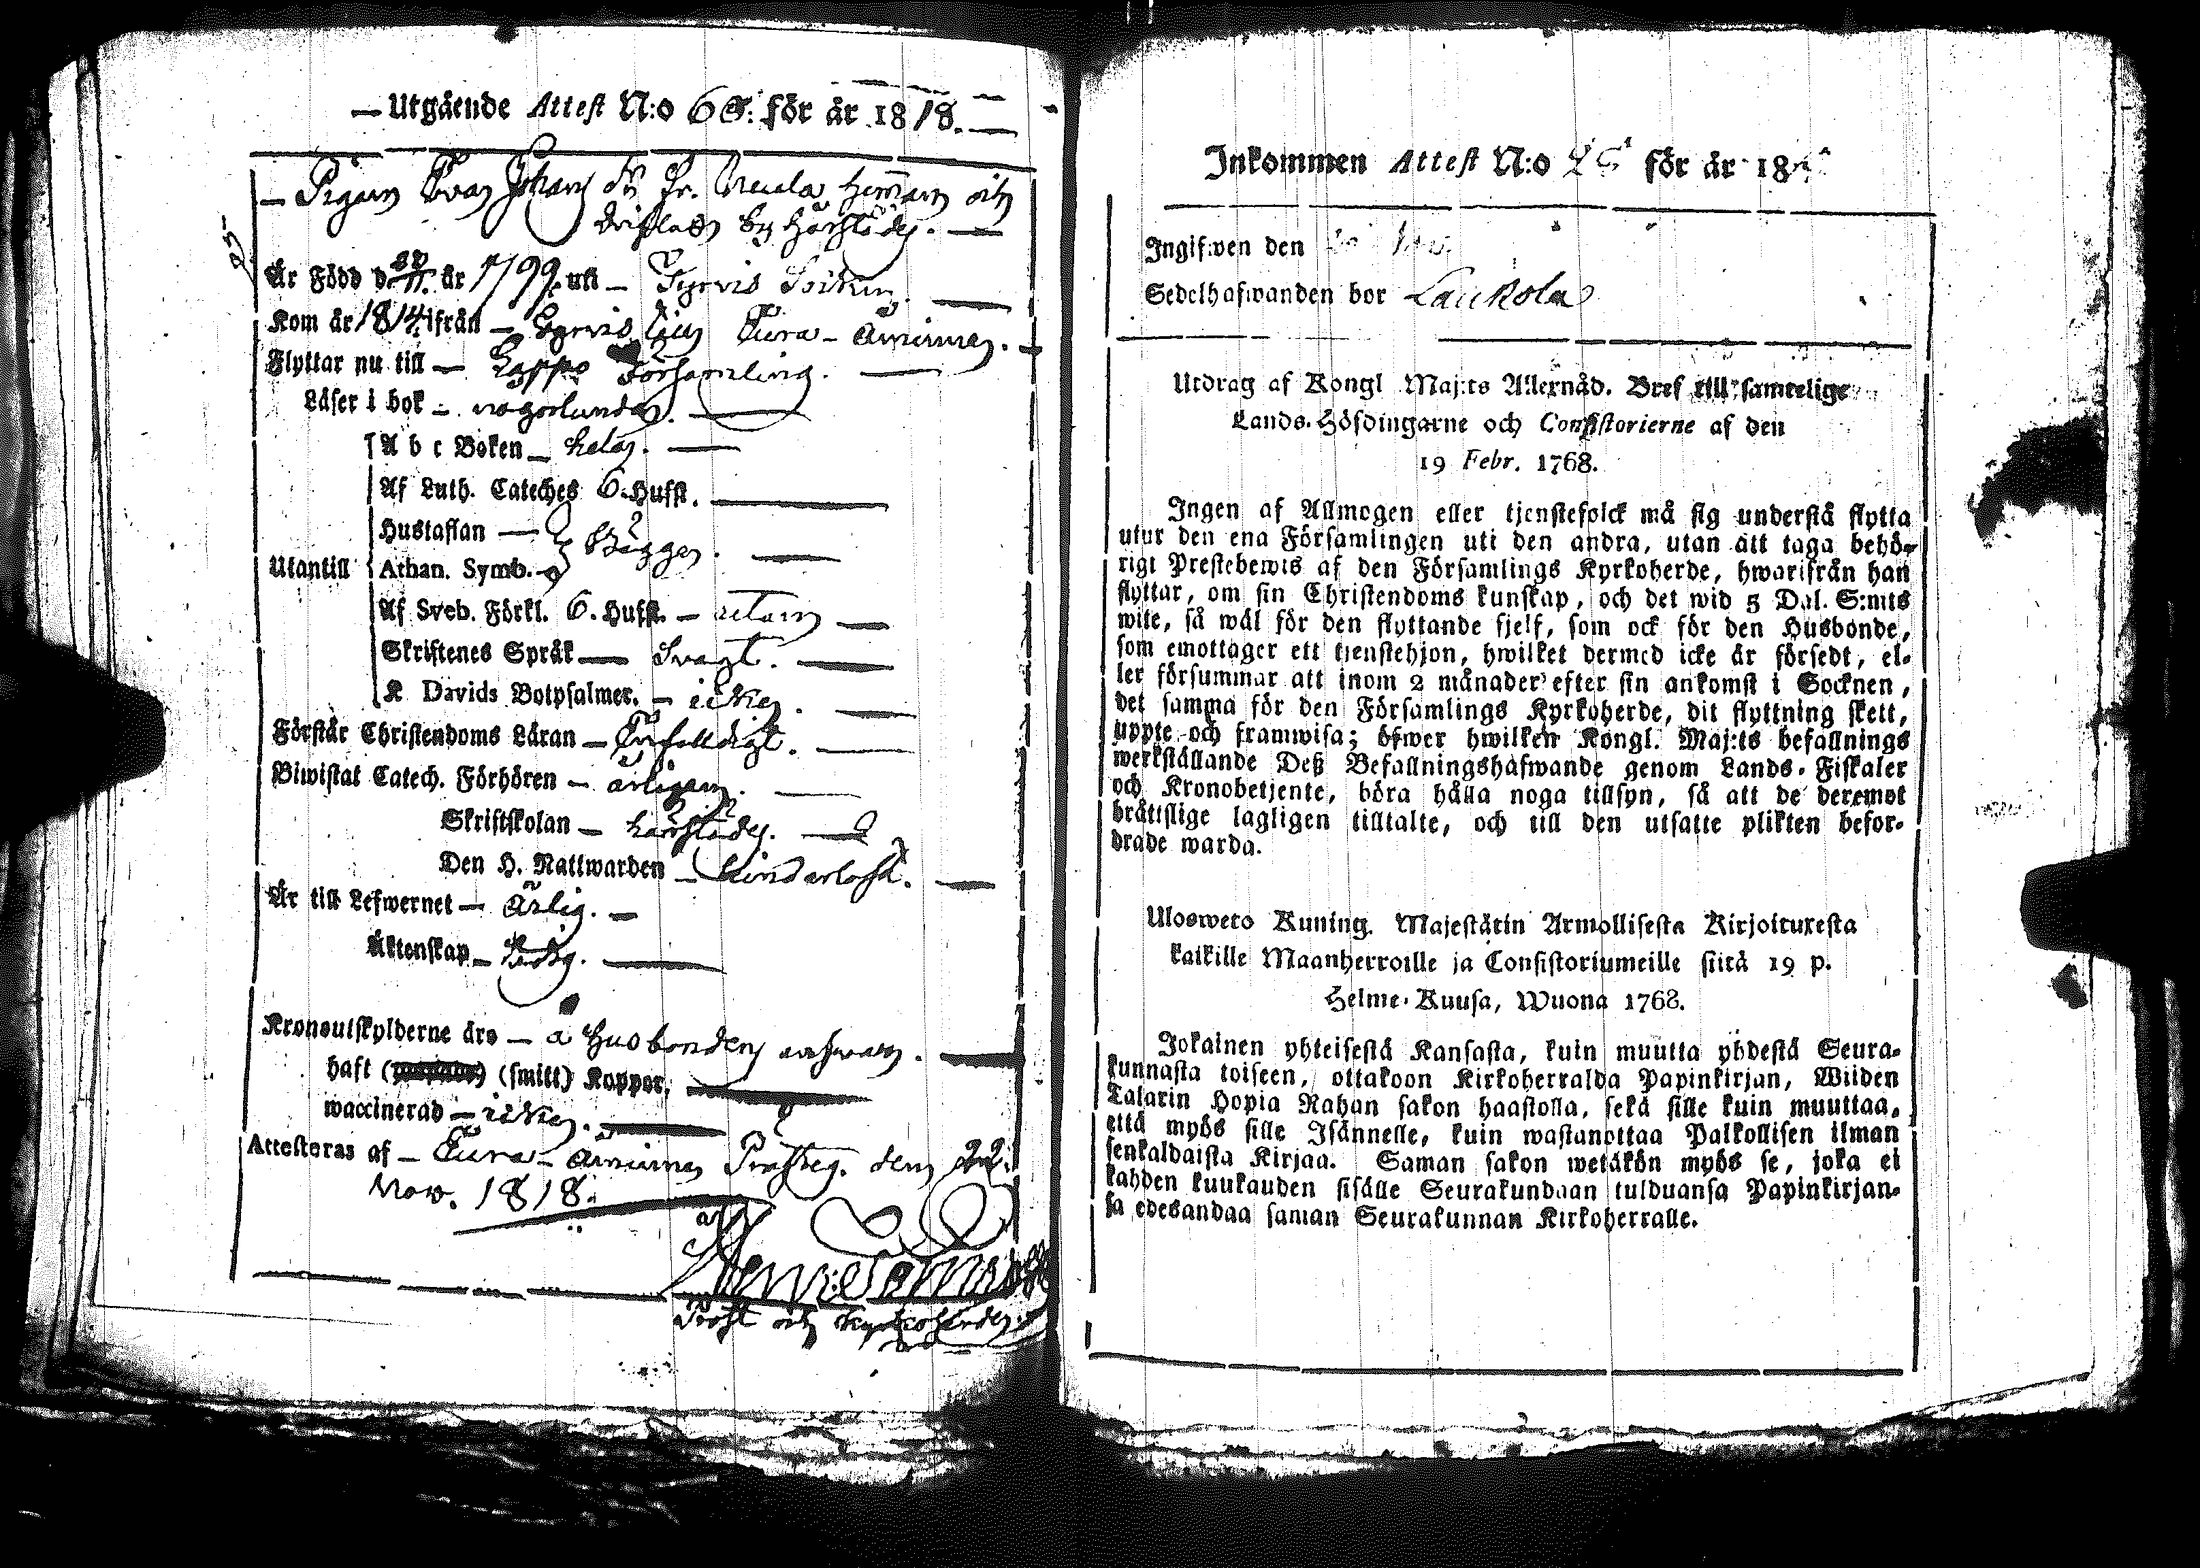 Utgående Attest N:o 68: för år 1818.
Pigan Eva Johans dr fr. Neula hemman och
by härstädes.
Är Född d. 11. är 1799. uti — Pyrvis Socken.
Kom år 1814 ifrån — Pyrvis till Eura-Åminne.
Flyttar nu till — Lappo Församling.
Läser i bok — någorlunda.
A b c Boken — hela.
Af Luth. Cateches 6. Hufst.
Hustaflan —
Bägge.
Utantill Athan. Symb. —
Af Sveb. Förkl. 6. Hufst. — utan
Skriftenes Språk — Svagt.
K Davids Botpsalmer. — icke.
Förstår Christendoms Läran — Enfaldigt.
Biwistat Catech. Förhören — årligen.
Skriftskolan — härstädes.
Den H. Nattwarden — oklanderligt.
Är till Lefwernet — Ärlig.
Äktenskap — Ledig.
Kronoutskylderne äro — å Husbondens answar.
haft (smitt) Koppor,
waccinerad — icke.
Attesteras af — Eura-Åminne Prästeg. den 22.
Nov. 1818.
Prost och Kyrkoherde.
Inkommen Attest N:o för år 18
Ingifwen den
Sedelhafwanden bor Laukola
Utdrag af Kongl Maj:ts Allernåd. Bref till samtelige
Lands-Höfdingarne och Consistorierne af den
19 Febr. 1768.
Ingen af Allmogen eller tjenstefolck må sig understå flytta
utur den ena Församlingen uti den andra, utan att taga behö-
rigt Prestebewis af den Församlings Kyrkoherde, hwarifrån han
flyttar, om sin Christendoms kunskap, och det wid 5 Dal. S:mts
wite, så wäl för den flyttande sjelf, som ock för den Husbonde,
som emottager ett tjenstehjon, hwilket dermed icke är försedt, el-
ler försummar att inom 2 månader efter sin ankomst i Socknen,
det samma för den Församlings Kyrkoherde, dit flyttning skett,
uppte och framwisa; öfwer hwilken Kongl. Maj:ts befallnings
werkställande Deß Befallningshafwande genom Lands-Fiskaler
och Kronobetjente, böra hålla noga tillsyn, så att de deremot
bråttslige lagligen tilltalte, och till den utsatte plikten befor-
drade warda.
Ulosweto Kuning. Majestätin Armollisesta Kirjoituxesta
kaikille Maanherroille ja Consistoriumeille siitä 19 p.
Helme-Kuusa, Wuona 1768.
Jokainen yhteisestä Kansasta, kuin muutta yhdestä Seura-
kunnasta toiseen, ottakoon Kirkoherralda Papinkirjan, Wiiden
Talarin Hopia Rahan sakon haastolla, sekä sille kuin muuttaa,
että myös sille Isännelle, kuin wastanottaa Palkollisen ilman
senkaldaista Kirjaa. Saman sakon wetäkön myös se, joka ei
kahden kuukauden sisälle Seurakundaan tulduansa Papinkirjan-
sa edesandaa saman Seurakunnan Kirkoherralle.